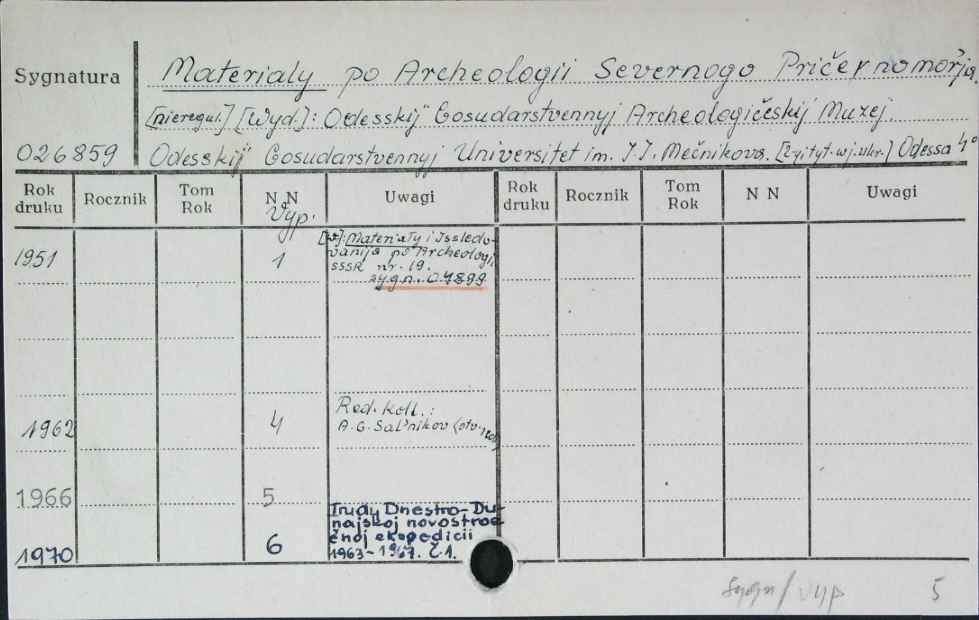 Sygnatura
Materialy po Archeologii Severnogo Pričernomorja
[nieregul.] [Wyd.]: Odesskij Gosudarstvennyj Archeologičeskij Muzej.
026859 Odesskij Gosudarstvennyj Universitet im. I.I. Mečnikova. Odessa 4°
Rok druku Rocznik Tom Rok N N Uwagi Rok druku Rocznik Tom Rok N N Uwagi
Vyp.
1951 1 [W:] Materiały i Issledo-
vanija po Archeologii
SSSR nr. 19.
sygn. 04899
1962 4 Red. koll.:
A.G. Sal'nikov (otv. red.)
1966 5
Trudy Dnestro-Du-
najskoj novostroe
čnoj ekspedicii
1970 6 1963-1967. Č.1.
5